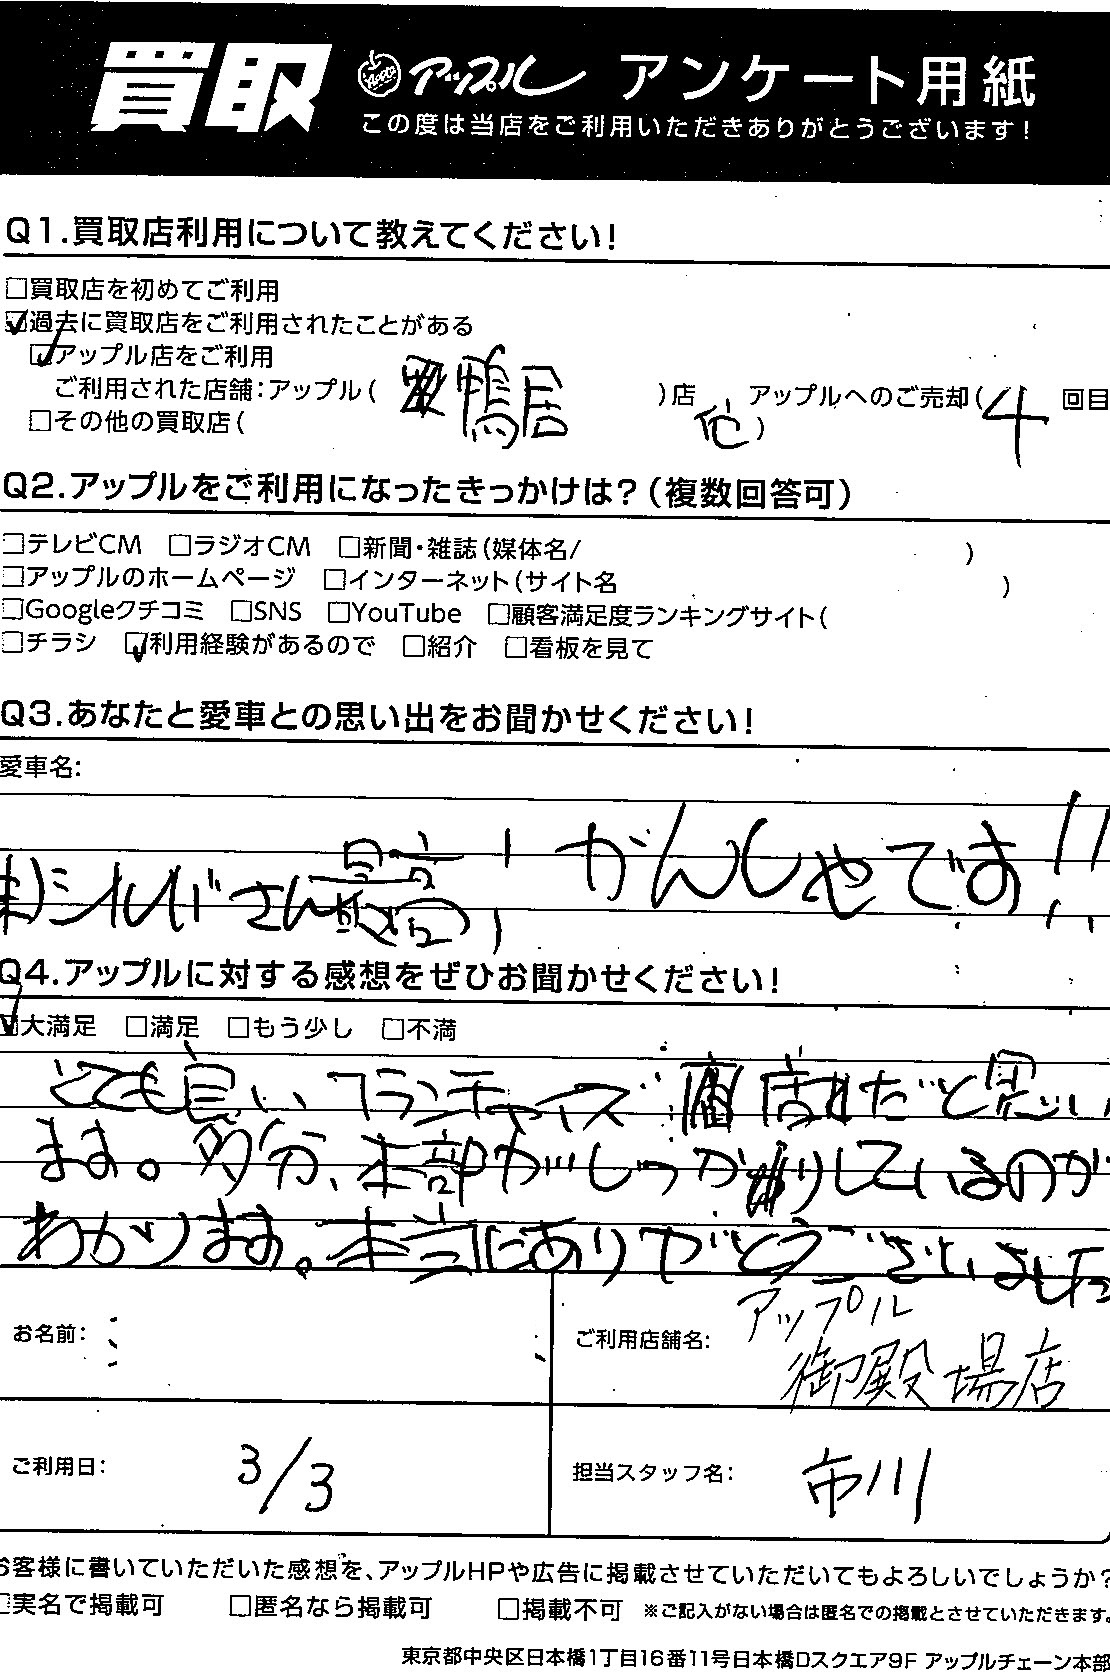 買取 Apple アップル アンケート用紙
この度は当店をご利用いただきありがとうございます!
Q1.買取店利用について教えてください!
□買取店を初めてご利用
☑過去に買取店をご利用されたことがある
☑アップル店をご利用
ご利用された店舗:アップル( 鴨居 )店 他 アップルへのご売却( 4 回目
□その他の買取店( )
Q2.アップルをご利用になったきっかけは?(複数回答可)
□テレビCM □ラジオCM □新聞・雑誌(媒体名/ )
□アップルのホームページ □インターネット(サイト名 )
□Googleクチコミ □SNS □YouTube □顧客満足度ランキングサイト(
□チラシ ☑利用経験があるので □紹介 □看板を見て
Q3.あなたと愛車との思い出をお聞かせください!
愛車名:
さん最高! かんしゃです!!
Q4.アップルに対する感想をぜひお聞かせください!
☑大満足 □満足 □もう少し □不満
とても良いフランチャイズ 店だと思い
ます。多分、本部がしっかりしているのが
わかります。本当にありがとうございました
お名前: ご利用店舗名: アップル
御殿場店
ご利用日: 3/3 担当スタッフ名: 市川
お客様に書いていただいた感想を、アップルHPや広告に掲載させていただいてもよろしいでしょうか?
□実名で掲載可 □匿名なら掲載可 □掲載不可 ※ご記入がない場合は匿名での掲載とさせていただきます。
東京都中央区日本橋1丁目16番11号日本橋Dスクエア9F アップルチェーン本部